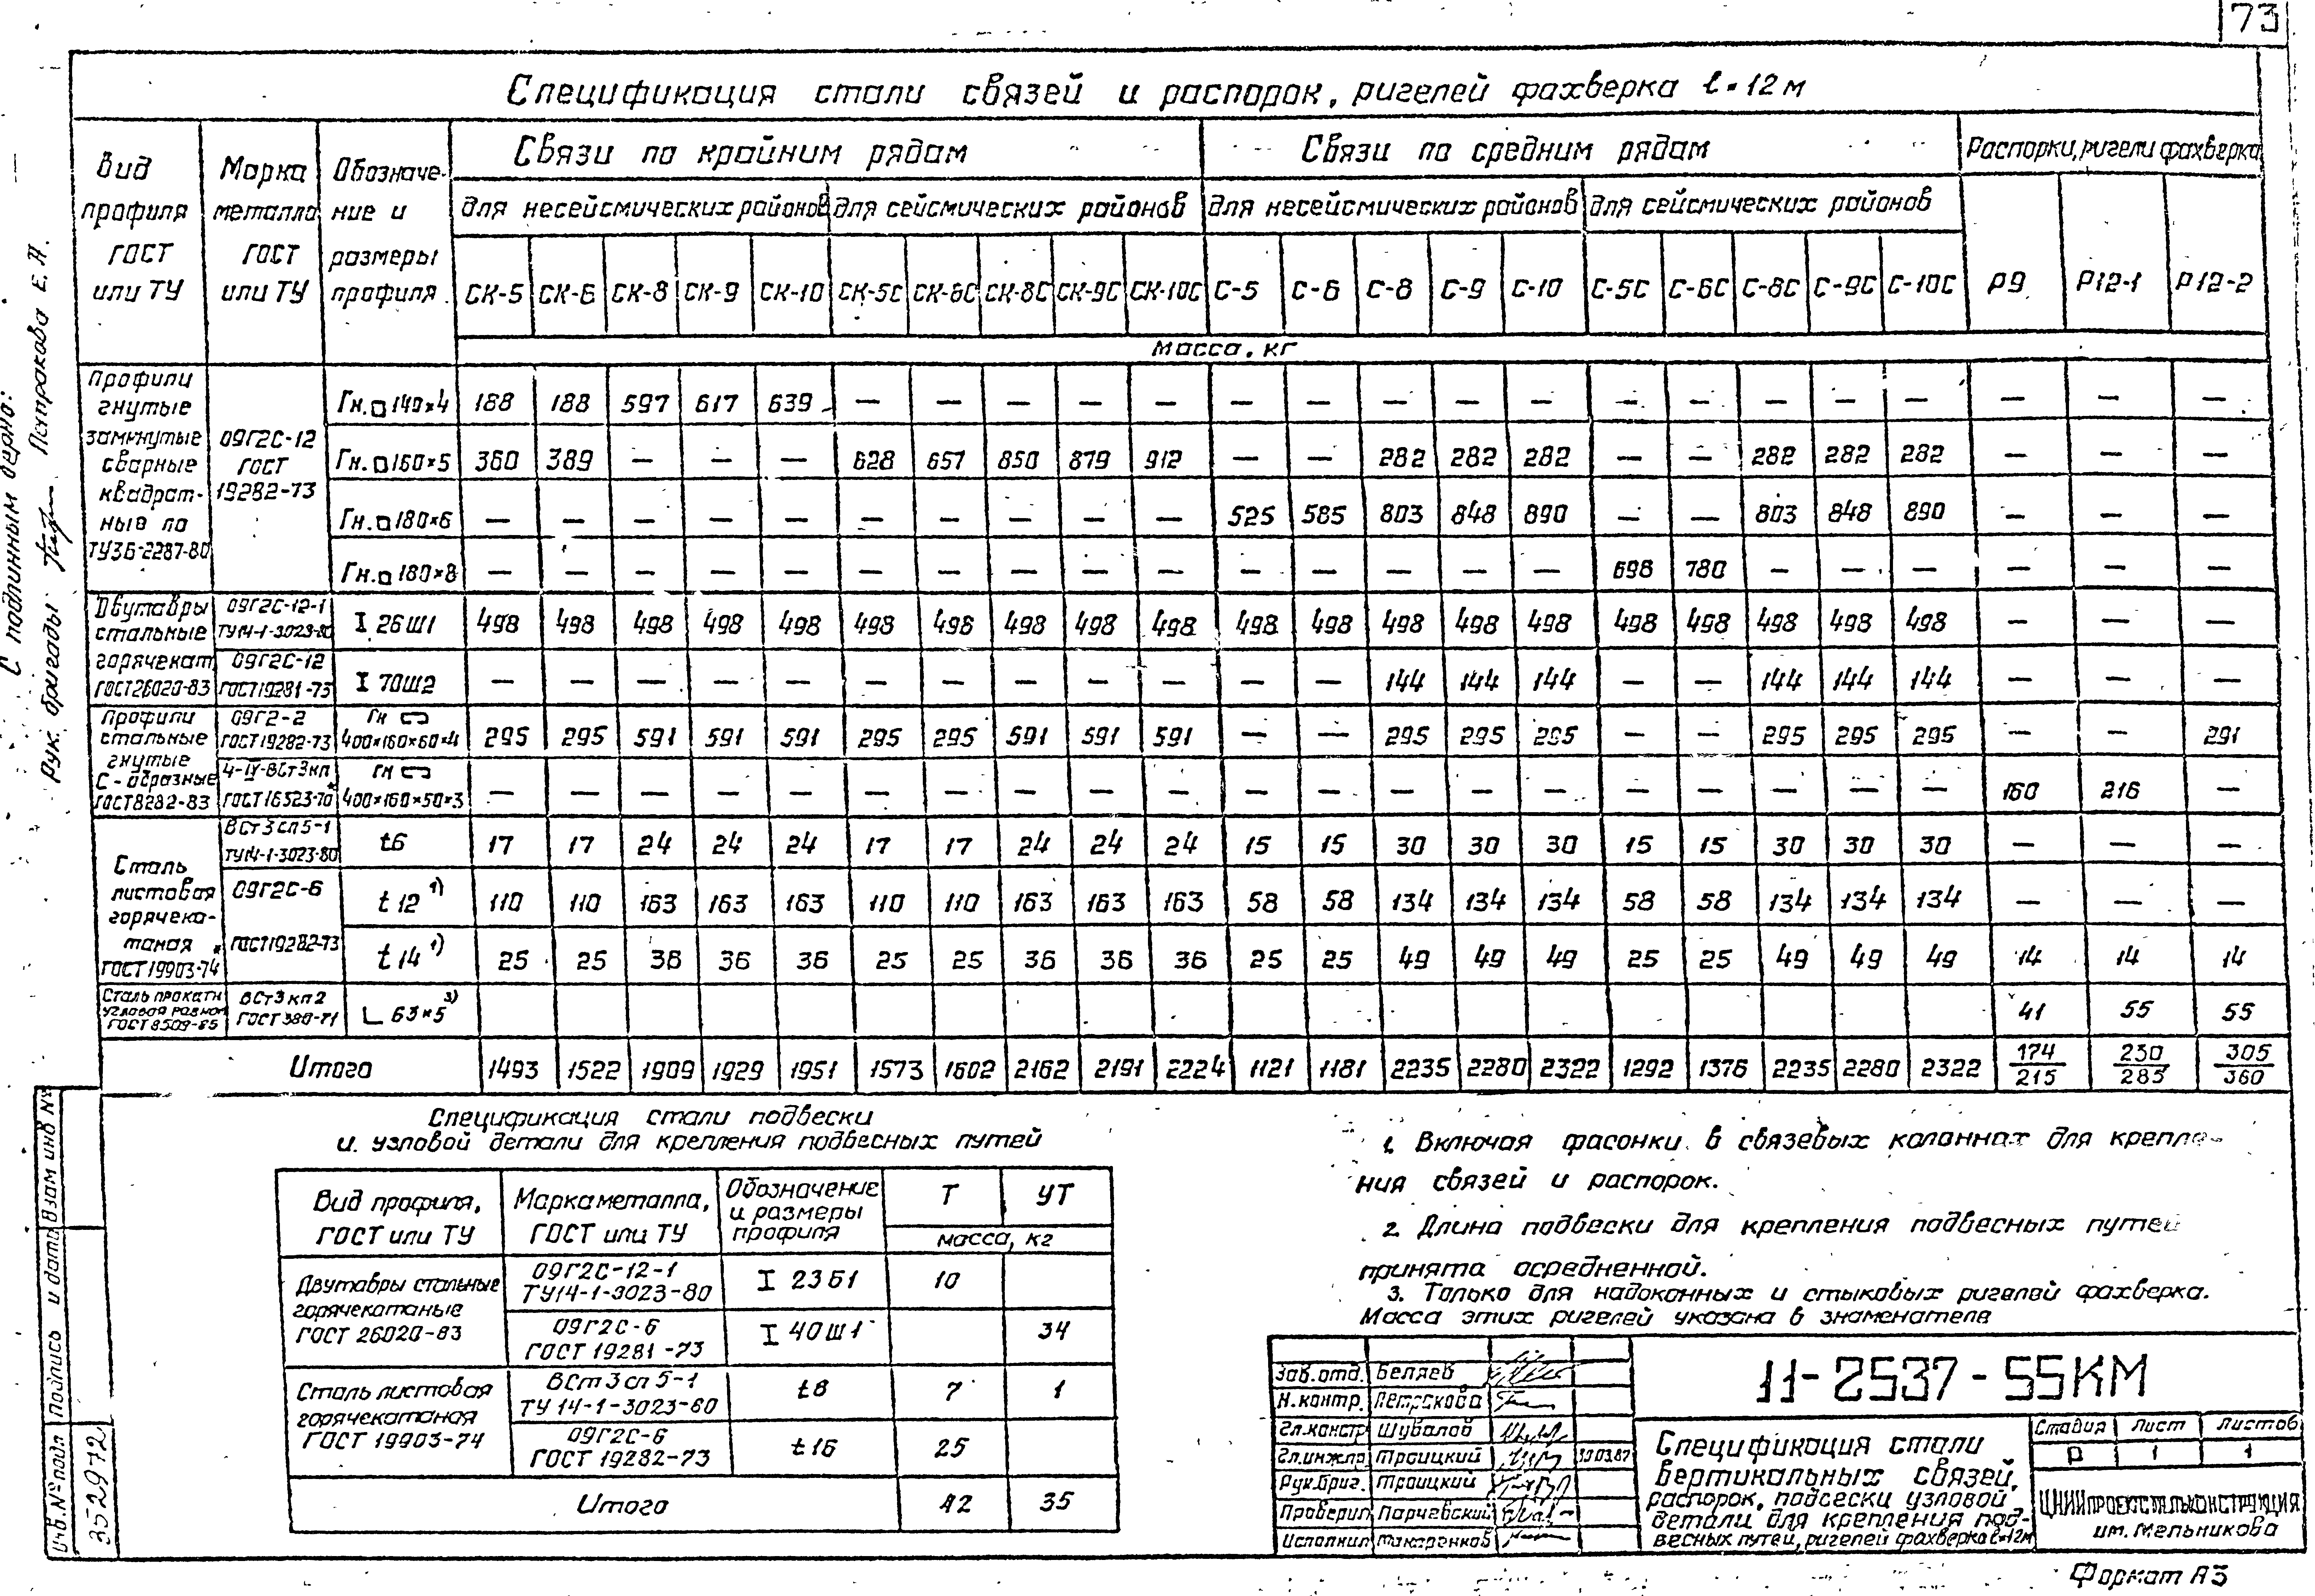 73
Спецификация стали связей и распорок, ригелей фахверка ℓ=12м
Вид профиля ГОСТ или ТУ
Марка металла ГОСТ или ТУ
Обозначение и размеры профиля
Связи по крайним рядам
Связи по средним рядам
Распорки, ригели фахверка
для несейсмических районов для сейсмических районов для несейсмических районов для сейсмических районов
СК-5 СК-6 СК-8 СК-9 СК-10 СК-5С СК-6С СК-8С СК-9С СК-10С С-5 С-6 С-8 С-9 С-10 С-5С С-6С С-8С С-9С С-10С Р9 Р12-1 Р12-2
Масса, кг
Профили гнутые замкнутые сварные квадратные по ТУ36-2287-80
09Г2С-12 ГОСТ 19282-73
Гн.□140×4 188 188 597 617 639 — — — — — — — — — — — — — — — — — —
Гн.□160×5 360 389 — — — 628 657 850 879 912 — — 282 282 282 — — 282 282 282 — — —
Гн.□180×6 — — — — — — — — — — 525 585 803 848 890 — — 803 848 890 — — —
Гн.□180×8 — — — — — — — — — — — — — — — 696 780 — — — — — —
Двутавры стальные горячекат. ГОСТ26020-83
09Г2С-12-1 ТУ14-1-3023-80 I 26Ш1 498 498 498 498 498 498 498 498 498 498 498 498 498 498 498 498 498 498 498 498 — — —
09Г2С-12 ГОСТ19281-73 I 70Ш2 — — — — — — — — — — — — 144 144 144 — — 144 144 144 — — —
Профили стальные гнутые С-образные ГОСТ8282-83
09Г2-2 ГОСТ19282-73 Гн ⊏⊐ 400×160×60×4 295 295 591 591 591 295 295 591 591 591 — — 295 295 295 — — 295 295 295 — — 291
4-IV-ВСт3кп ГОСТ16523-70* Гн ⊏⊐ 400×160×50×3 — — — — — — — — — — — — — — — — — — — — 160 216 —
Сталь листовая горячекатаная ГОСТ19903-74*
ВСт3сп5-1 ТУ14-1-3023-80 t6 17 17 24 24 24 17 17 24 24 24 15 15 30 30 30 15 15 30 30 30 — — —
09Г2С-6 ГОСТ19282-73
t12 1) 110 110 163 163 163 110 110 163 163 163 58 58 134 134 134 58 58 134 134 134 — — —
t14 1) 25 25 36 36 36 25 25 36 36 36 25 25 49 49 49 25 25 49 49 49 14 14 14
Сталь прокатн угловая равноп ГОСТ8509-85 ВСт3кп2 ГОСТ380-71 ∟63×5 3) 41 55 55
Итого 1493 1522 1909 1929 1951 1573 1602 2162 2191 2224 1121 1181 2235 2280 2322 1292 1376 2235 2280 2322 174/215 230/285 305/360
Спецификация стали подвески
и узловой детали для крепления подвесных путей
Вид профиля, ГОСТ или ТУ
Марка металла, ГОСТ или ТУ
Обозначение и размеры профиля
Т УТ
масса, кг
Двутавры стальные горячекатаные ГОСТ 26020-83
09Г2С-12-1 ТУ14-1-3023-80 I 23Б1 10
09Г2С-6 ГОСТ 19281-73 I 40Ш1 34
Сталь листовая горячекатаная ГОСТ 19903-74
ВСт3сп5-1 ТУ 14-1-3023-80 t8 7 1
09Г2С-6 ГОСТ 19282-73 t16 25
Итого 42 35
1. Включая фасонки в связевых колоннах для крепле-
ния связей и распорок.
2. Длина подвески для крепления подвесных путей
принята осредненной.
3. Только для надоконных и стыковых ригелей фахверка.
Масса этих ригелей указана в знаменателе
Зав.отд. Беляев
Н.контр. Петракова
Гл.констр Шувалов
Гл.инж.пр Троицкий 30.03.87
Рук.бриг. Троицкий
Проверил Парчевский
Исполнил
11-2537-55КМ
Спецификация стали
вертикальных связей,
распорок, подвески узловой
детали для крепления под-
весных путей, ригелей фахверка ℓ=12м
Стадия Лист Листов
Р 1 1
ЦНИИПРОЕКТСТАЛЬКОНСТРУКЦИЯ
им. Мельникова
Формат А3
С подлинным верно:
Рук. бригады Петракова Е.А.
Взам инв №
Подпись и дата
Инв.№ подл
352972